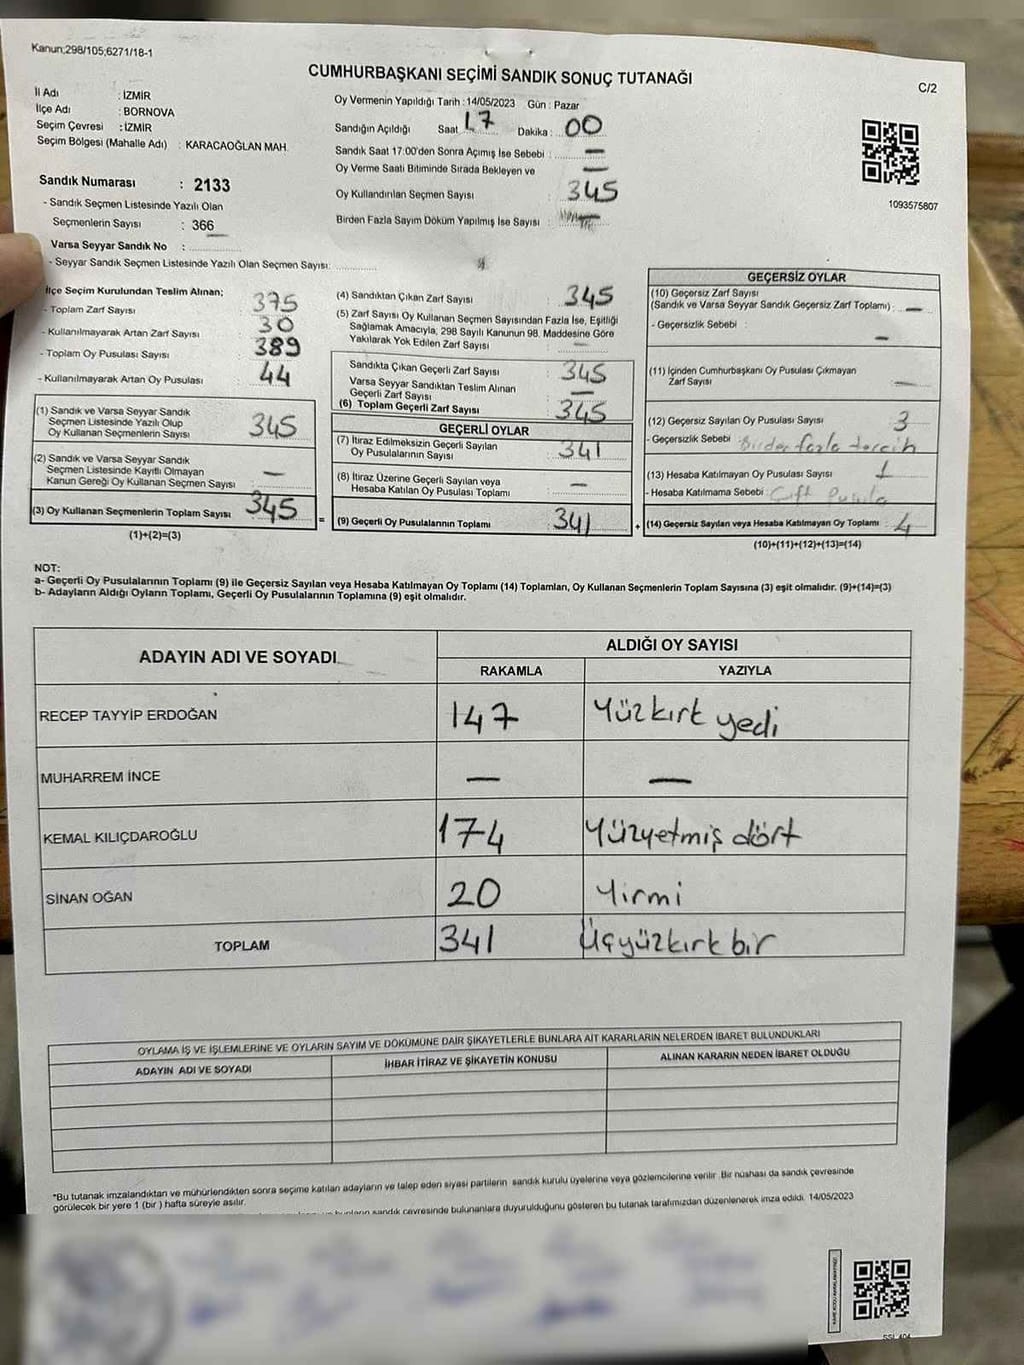 Kanun;298/105;6271/18-1
CUMHURBAŞKANI SEÇİMİ SANDIK SONUÇ TUTANAĞI
C/2
İl Adı : İZMİR
İlçe Adı : BORNOVA
Seçim Çevresi : İZMİR
Seçim Bölgesi (Mahalle Adı) : KARACAOĞLAN MAH.
Sandık Numarası : 2133
- Sandık Seçmen Listesinde Yazılı Olan
Seçmenlerin Sayısı : 366
Varsa Seyyar Sandık No :
- Seyyar Sandık Seçmen Listesinde Yazılı Olan Seçmen Sayısı:
Oy Vermenin Yapıldığı Tarih : 14/05/2023 Gün : Pazar
Sandığın Açıldığı Saat 17 Dakika : 00
Sandık Saat 17:00'den Sonra Açımış İse Sebebi : —
Oy Verme Saati Bitiminde Sırada Bekleyen ve —
Oy Kullandırılan Seçmen Sayısı : 345
Birden Fazla Sayım Döküm Yapılmış İse Sayısı :
1093575807
İlçe Seçim Kurulundan Teslim Alınan;
- Toplam Zarf Sayısı : 375
- Kullanılmayarak Artan Zarf Sayısı : 30
- Toplam Oy Pusulası Sayısı : 389
- Kullanılmayarak Artan Oy Pusulası : 44
(1) Sandık ve Varsa Seyyar Sandık
Seçmen Listesinde Yazılı Olup
Oy Kullanan Seçmenlerin Sayısı : 345
(2) Sandık ve Varsa Seyyar Sandık
Seçmen Listesinde Kayıtlı Olmayan
Kanun Gereği Oy Kullanan Seçmen Sayısı : —
(3) Oy Kullanan Seçmenlerin Toplam Sayısı : 345
(1)+(2)=(3)
(4) Sandıktan Çıkan Zarf Sayısı : 345
(5) Zarf Sayısı Oy Kullanan Seçmen Sayısından Fazla İse, Eşitliği
Sağlamak Amacıyla, 298 Sayılı Kanunun 98. Maddesine Göre
Yakılarak Yok Edilen Zarf Sayısı : —
Sandıkta Çıkan Geçerli Zarf Sayısı : 345
Varsa Seyyar Sandıktan Teslim Alınan
Geçerli Zarf Sayısı : —
(6) Toplam Geçerli Zarf Sayısı : 345
GEÇERLİ OYLAR
(7) İtiraz Edilmeksizin Geçerli Sayılan
Oy Pusulalarının Sayısı : 341
(8) İtiraz Üzerine Geçerli Sayılan veya
Hesaba Katılan Oy Pusulası Toplamı : —
= (9) Geçerli Oy Pusulalarının Toplamı : 341 +
GEÇERSİZ OYLAR
(10) Geçersiz Zarf Sayısı
(Sandık ve Varsa Seyyar Sandık Geçersiz Zarf Toplamı) : —
- Geçersizlik Sebebi : —
(11) İçinden Cumhurbaşkanı Oy Pusulası Çıkmayan
Zarf Sayısı : —
(12) Geçersiz Sayılan Oy Pusulası Sayısı : 3
- Geçersizlik Sebebi : Birden fazla tercih
(13) Hesaba Katılmayan Oy Pusulası Sayısı : 1
- Hesaba Katılmama Sebebi : Çift Pusula
(14) Geçersiz Sayılan veya Hesaba Katılmayan Oy Toplamı : 4
(10)+(11)+(12)+(13)=(14)
NOT:
a- Geçerli Oy Pusulalarının Toplamı (9) ile Geçersiz Sayılan veya Hesaba Katılmayan Oy Toplamı (14) Toplamları, Oy Kullanan Seçmenlerin Toplam Sayısına (3) eşit olmalıdır. (9)+(14)=(3)
b- Adayların Aldığı Oyların Toplamı, Geçerli Oy Pusulalarının Toplamına (9) eşit olmalıdır.
ADAYIN ADI VE SOYADI ALDIĞI OY SAYISI
RAKAMLA YAZIYLA
RECEP TAYYİP ERDOĞAN 147 Yüzkırt yedi
MUHARREM İNCE — —
KEMAL KILIÇDAROĞLU 174 Yüzyetmiş dört
SİNAN OĞAN 20 Yirmi
TOPLAM 341 Üçyüzkırk bir
OYLAMA İŞ VE İŞLEMLERİNE VE OYLARIN SAYIM VE DÖKÜMÜNE DAİR ŞİKAYETLERLE BUNLARA AİT KARARLARIN NELERDEN İBARET BULUNDUKLARI
ADAYIN ADI VE SOYADI İHBAR İTİRAZ VE ŞİKAYETİN KONUSU ALINAN KARARIN NEDEN İBARET OLDUĞU
*Bu tutanak imzalandıktan ve mühürlendikten sonra seçime katılan adayların ve talep eden siyasi partilerin sandık kurulu üyelerine veya gözlemcilerine verilir. Bir nüshası da sandık çevresinde
görülecek bir yere 1 (bir ) hafta süreyle asılır.
sandık çevresinde bulunanlara duyurulduğunu gösteren bu tutanak tarafımızdan düzenlenerek imza edildi. 14/05/2023